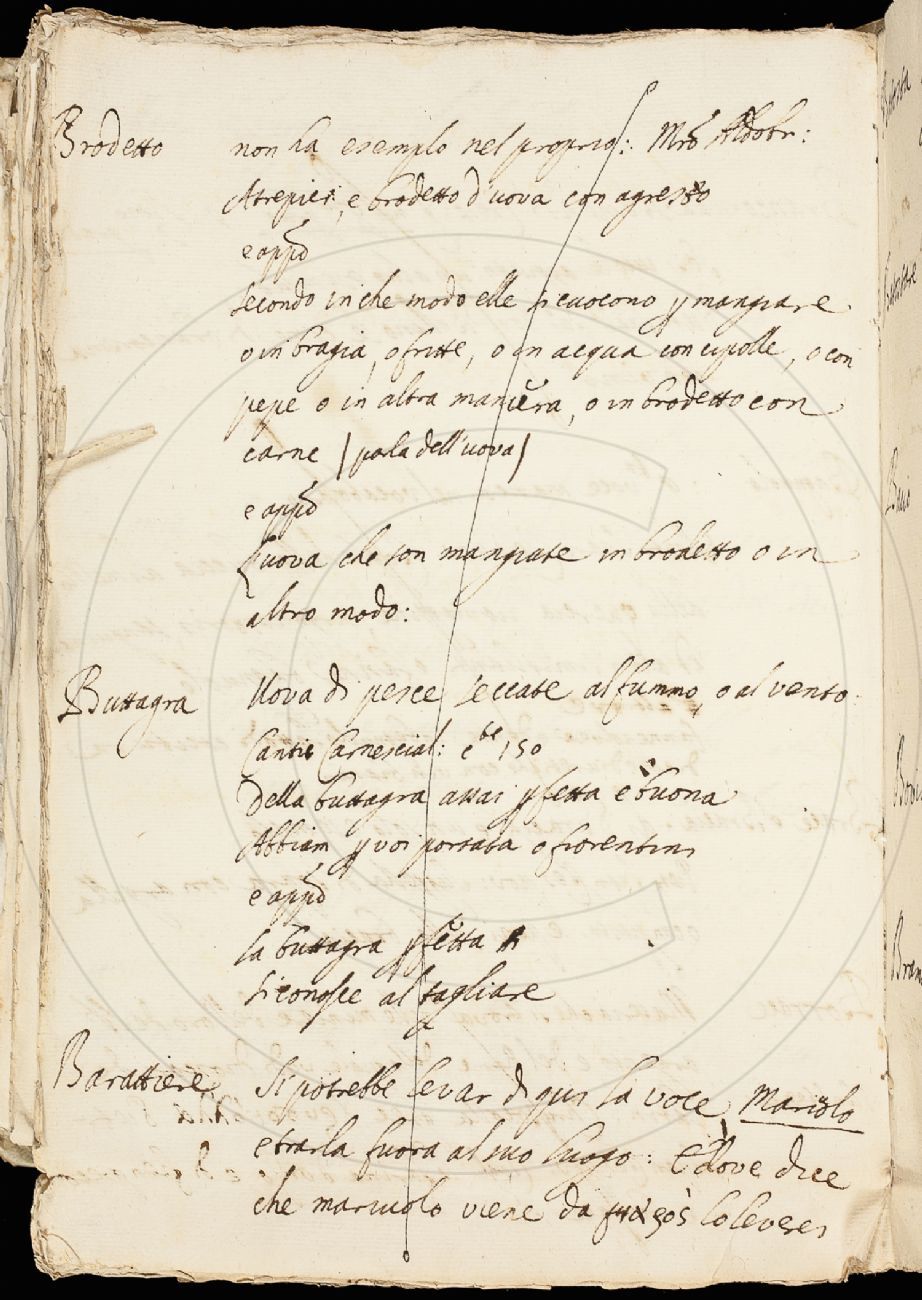 Brodetto non ha esemplo nel proprio: Mrõ Aldobr:
Atrepici, e brodetto d'uova con agresto
e appõ
secondo in che modo elle si cuocono ꝑ mangiare
o in bragia, o fritte, o in acqua con cipolle, o con
pepe o in altra maniera, o in brodetto con
carne (parla dell'uova)
e appõ
Luova che son mangiate in brodetto o in
altro modo:
Buttagra Uova di pesce seccate al fummo, o al vento.
Canti Carnescial: cte 150
Della buttagra assai ꝑfetta e buona
Abbiam ꝑ voi portata o fiorentini
e appõ
la buttagra ꝑfetta
si conosce al tagliare
Barattiere Si potrebbe levar di qui la voce Mariolo
e trarla fuora al suo luogo: E dove dice
che mariuolo viene da lo leverei
Bovi